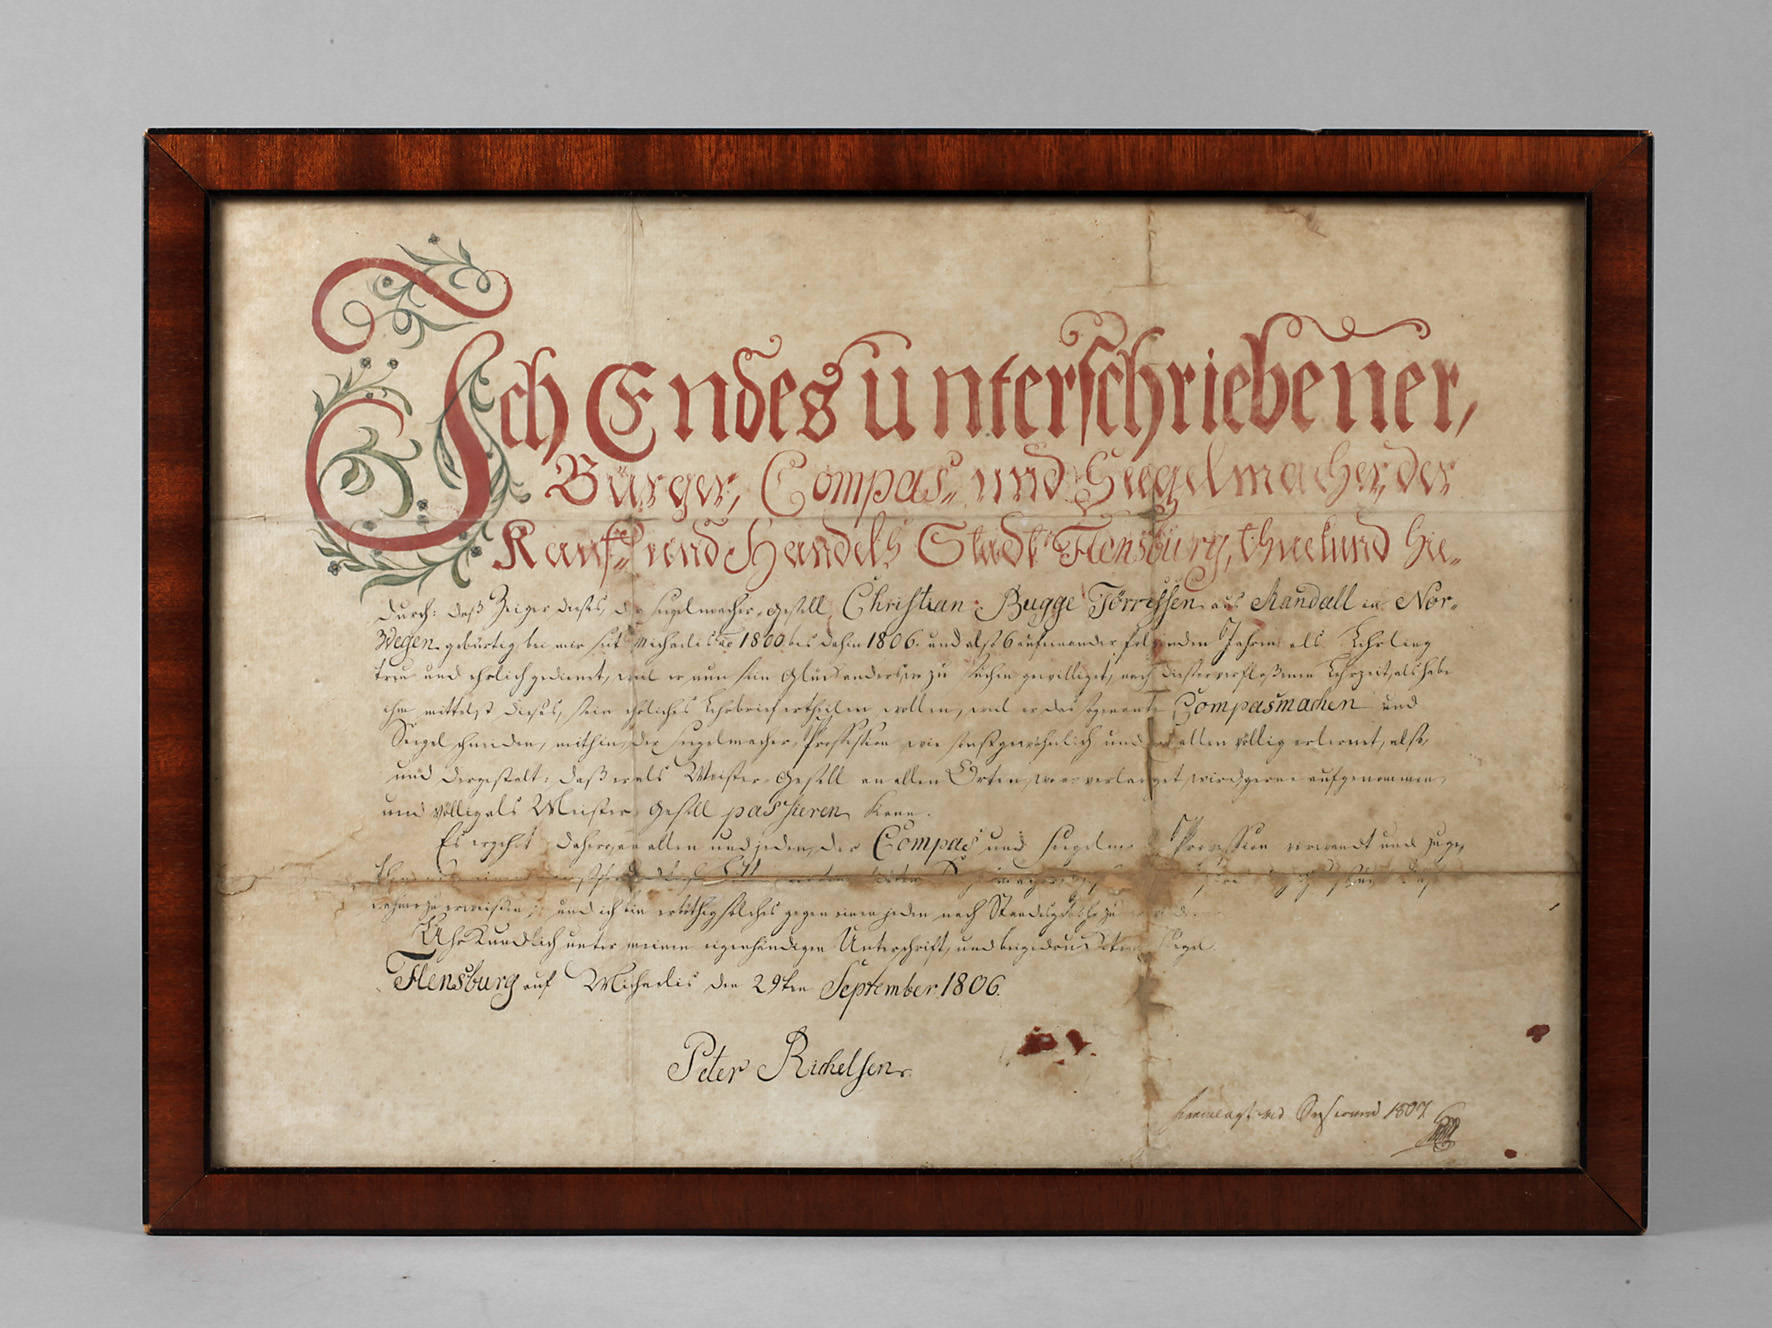 Ich Endes unterschriebener,
Bürger, Compas- und Seegelmacher, der
Kauf- und Handels Stadt Flensburg, thue kund hie-
durch: daß Zeiger dieses, der Seegelmacher-Gesell Christian Bugge Törressen aus Mandall in Nor-
wegen gebürtig bei mir seit Michaelis Ao 1800 bis dahin 1806. und also 6 aufeinander folgenden Jahren als Lehrling
treu und ehrlich gedienet, weil er nun sein Glück anderswo zu suchen gewilliget, nach dieser verfloßenen Lehrzeit, als habe
ihm mittelst dieses, sein ehrliches Lehrbrief ertheilen wollen, weil er das Compasmachen und
Seegel schneiden, mithin, der Seegelmacher Profession, wie gewöhnlich und allen völlig erlernet, also,
und dergestalt: daß er als Meister-Gesell an allen Orten, wo es verlanget, wird gerne aufgenommen,
und völlig als Meister Gesell passieren kann.
Es ergehet daher, an allen und jeden, der Compas und Seegelm Profession verwandt und zuge,
erweisen und ich bin erböthig solches gegen einen jeden nach Standesgebühr zu
Uhrkundlich unter meinen eigenhändigen Unterschrift, und beigedruckten Siegel.
Flensburg auf Michaelis den 29ten September 1806.
Peter Richelsen
1807